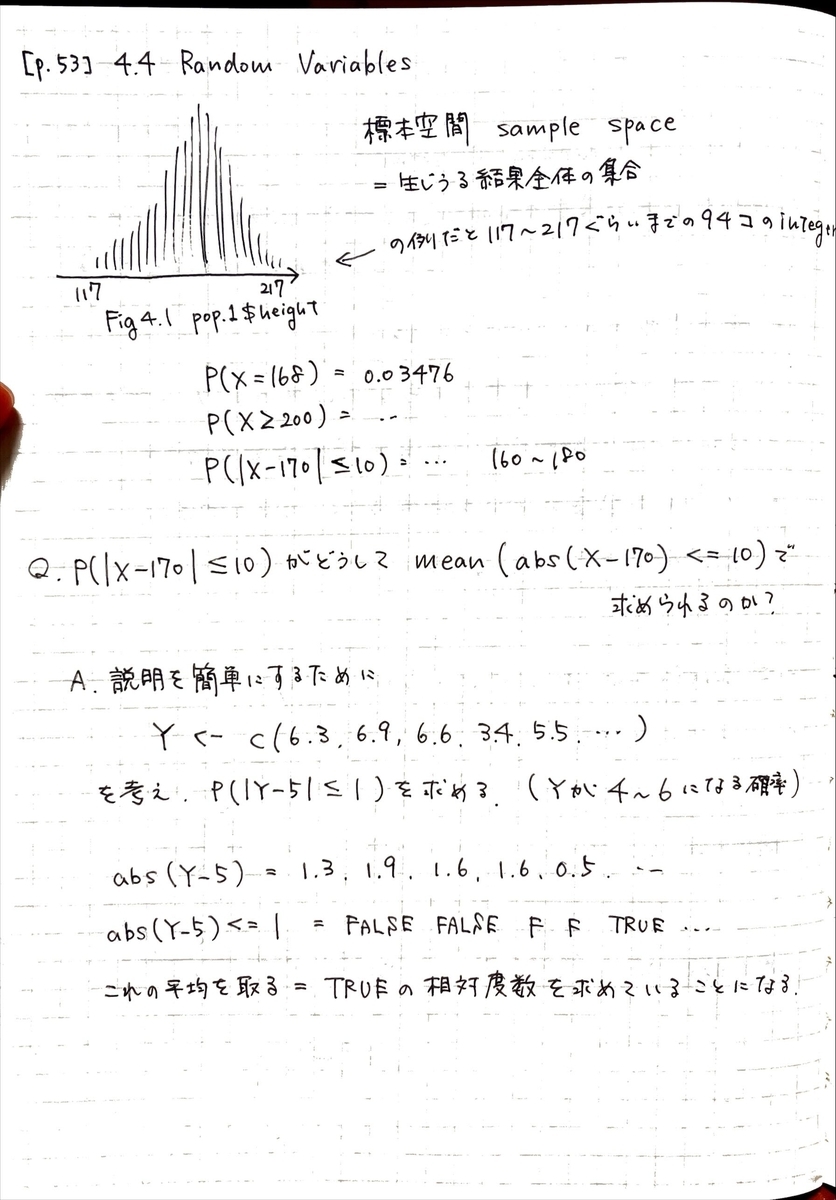 [p.53] 4.4 Random Variables
標本空間 sample space
= 生じうる結果全体の集合
の例だと117～217ぐらいまでの94コのinteger
117 217
Fig4.1 pop.1$height
P(X=168) = 0.03476
P(X≥200) = ..
P(|X-170|≤10) = ... 160~180
Q. P(|X-170|≤10)がどうして mean (abs(X-170) <= 10)で
求められるのか?
A. 説明を簡単にするために
Y <- c(6.3, 6.9, 6.6, 3.4, 5.5, ...)
を考え, P(|Y-5|≤1)を求める. (Yが4~6になる確率)
abs(Y-5) = 1.3, 1.9, 1.6, 1.6, 0.5, ...
abs(Y-5)<=1 = FALSE FALSE F F TRUE ...
これの平均を取る = TRUEの相対度数を求めていることになる.